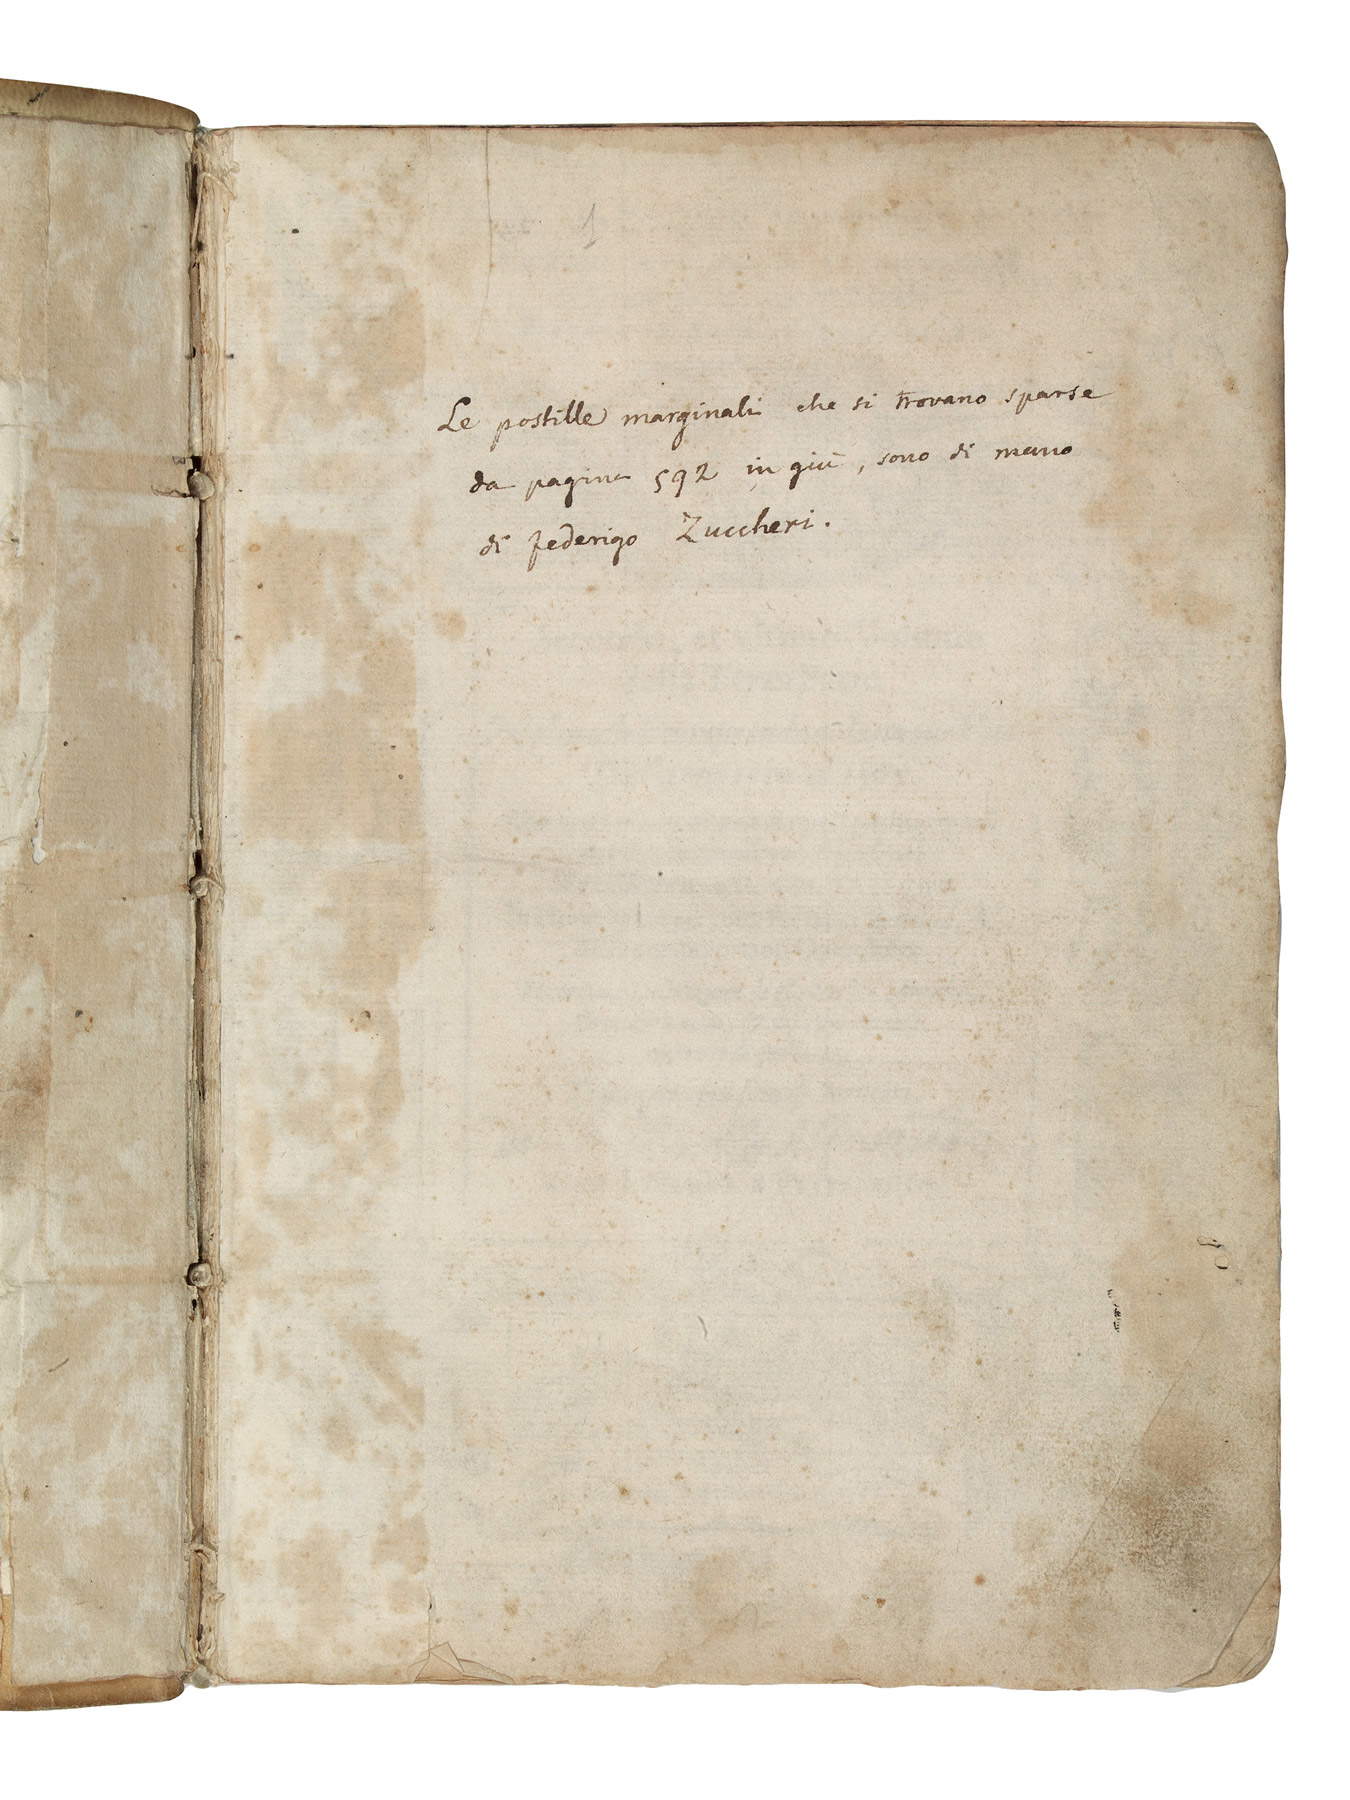 1
Le postille marginali che si trovano sparse
da pagina 592 in giù, sono di mano
di Federigo Zuccheri.